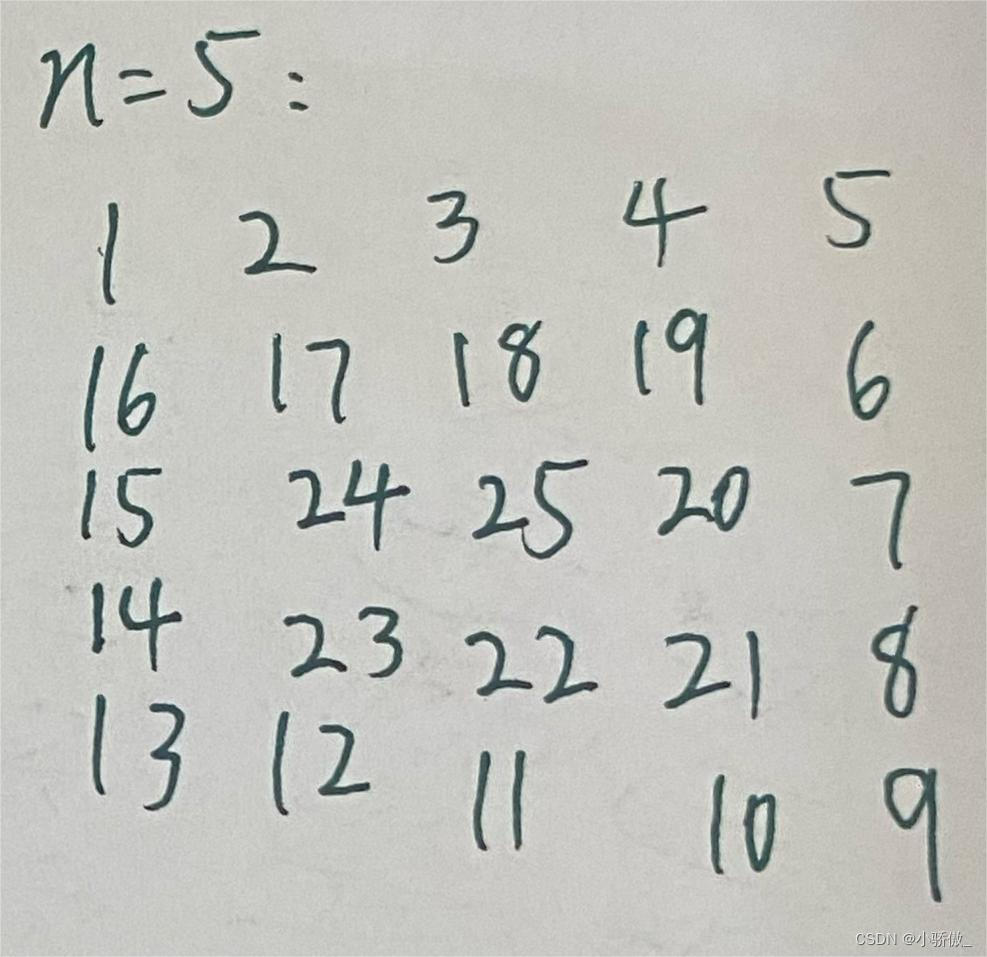 n=5:
1 2 3 4 5
16 17 18 19 6
15 24 25 20 7
14 23 22 21 8
13 12 11 10 9
CSDN @小骄傲_